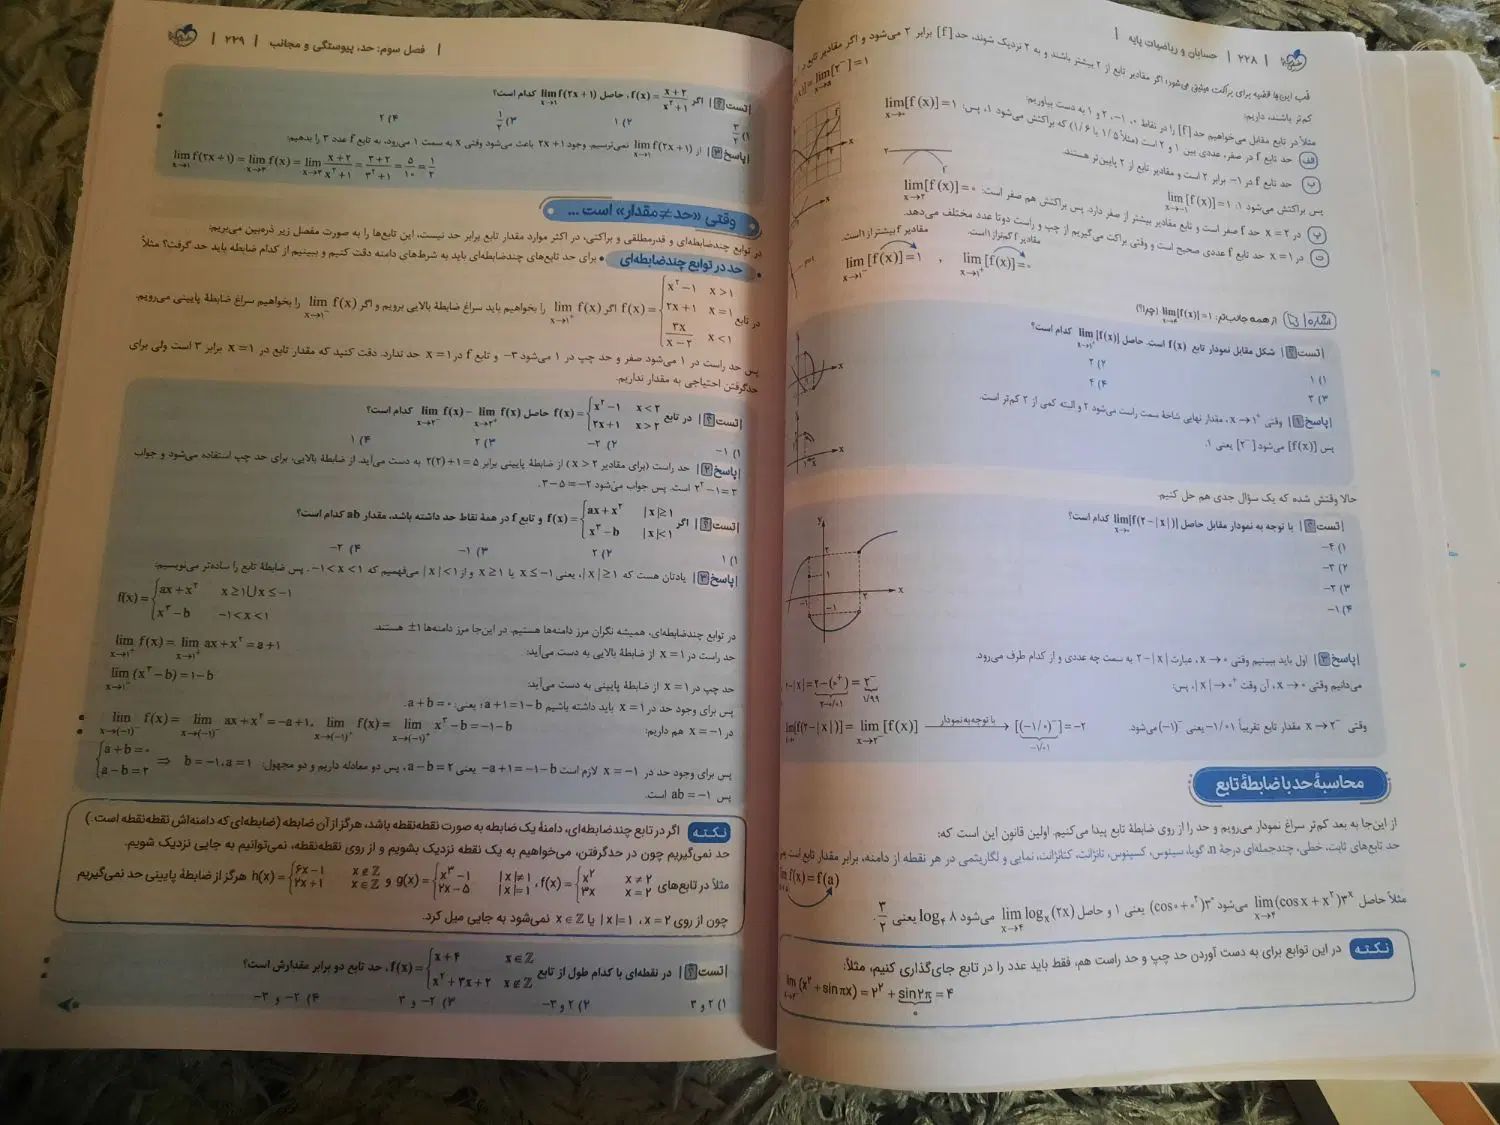 ۲۲۸ | حسابان و ریاضیات پایه |
قُب این‌ها قضیه برای براکت میثیق می‌شود؛ اگر مقادیر تابع از ۲ بیشتر باشند و به ۲ نزدیک شوند، حد [f] برابر ۲ می‌شود و اگر مقادیر تابع
کم‌تر باشند، داریم: lim[۲⁻] = ۱
مثلاً در تابع مقابل می‌خواهیم حد [f] را در نقاط ۰، ۱-، ۲ و ۱ به دست بیاوریم:
الف) حد تابع f در صفر، عددی بین ۱ و ۲ است (مثلاً ۱/۵ یا ۱/۶) که براکتش می‌شود ۱، پس: lim[f(x)] = ۱ x→۰
ب) حد تابع f در ۱- برابر ۲ است و مقادیر تابع از ۲ پایین‌تر هستند.
پس براکتش می‌شود ۱: lim[f(x)] = ۱ x→-۱
پ) در x = ۲ حد f صفر است و تابع مقادیر بیشتر از صفر دارد. پس براکتش هم صفر است: lim[f(x)] = ۰ x→۲
ت) در x = ۱ حد تابع f عددی صحیح است و وقتی براکت می‌گیریم از چپ و راست دوتا عدد مختلف می‌دهد.
مقادیر f بیشتر از ۱ است. مقادیر f کم‌تر از ۱ است.
lim[f(x)] = ۱ x→۱⁻ , lim[f(x)] = ۰ x→۱⁺
اشاره | از همه جانب‌تر: lim[f(x)] = ۱ (چرا؟)
تست | شکل مقابل نمودار تابع f(x) است. حاصل lim[f(x)] x→۱⁺ کدام است؟
۱) ۱ ۲) ۲
۳) ۳ ۴) ۴
پاسخ ۱ | وقتی x→۱⁺، مقدار نهایی شاخهٔ سمت راست می‌شود ۲ و البته کمی از ۲ کم‌تر است.
پس [f(x)] می‌شود [۲⁻] یعنی ۱.
حالا وقتش شده که یک سؤال جدی هم حل کنیم.
تست | با توجه به نمودار مقابل حاصل lim[f(۲-|x|)] x→۰ کدام است؟
۱) ۴-
۲) ۳-
۳) ۲-
۴) ۱-
پاسخ ۳ | اول باید ببینیم وقتی x→۰، عبارت ۲-|x| به سمت چه عددی و از کدام طرف می‌رود.
می‌دانیم وقتی x→۰، آن وقت |x|→۰⁺، پس: ۲-|x| = ۲-(۰⁺) = ۲⁻
۲-۰/۰۱ ۱/۹۹
وقتی x→۲⁻ مقدار تابع تقریباً ۱/۰۱- یعنی (-۱)⁻ می‌شود. lim[f(۲-|x|)] = lim[f(x)] x→۲⁻ با توجه به نمودار → [(-۱/۰)⁻] = -۲
-۱/۰۱
محاسبهٔ حد با ضابطهٔ تابع
از این‌جا به بعد کم‌تر سراغ نمودار می‌رویم و حد را از روی ضابطهٔ تابع پیدا می‌کنیم. اولین قانون این است که:
حد تابع‌های ثابت، خطی، چندجمله‌ای درجهٔ n، گویا، سینوس، کسینوس، تانژانت، کتانژانت، نمایی و لگاریتمی در هر نقطه از دامنه، برابر مقدار تابع است
lim f(x) = f(a)
مثلاً حاصل lim(cos x + x²)۳ˣ می‌شود (cos ۰ + ۰²)۳⁰ یعنی ۱ و حاصل lim logₓ(۲x) x→۴ می‌شود log₄ ۸ یعنی ۳/۲.
نکته در این توابع برای به دست آوردن حد چپ و حد راست هم، فقط باید عدد را در تابع جای‌گذاری کنیم، مثلاً:
lim(x² + sin πx) = ۲² + sin ۲π = ۴
۰
| فصل سوم: حد، پیوستگی و مجانب | ۲۲۹ |
تست | اگر f(x) = (x+۲)/(x²+۱)، حاصل lim f(۲x+۱) x→۱ کدام است؟
۱) ۳/۲ ۲) ۱ ۳) ۱/۲ ۴) ۲
پاسخ ۳ | از lim f(۲x+۱) x→۱ نمی‌ترسیم. وجود ۲x+۱ باعث می‌شود وقتی x به سمت ۱ می‌رود، به تابع f عدد ۳ را بدهیم:
lim f(۲x+۱) x→۱ = lim f(x) x→۳ = lim x→۳ (x+۲)/(x²+۱) = (۳+۲)/(۳²+۱) = ۵/۱۰ = ۱/۲
وقتی «حد ≠ مقدار» است ...
در توابع چندضابطه‌ای و قدرمطلقی و براکتی، در اکثر موارد مقدار تابع برابر حد نیست، این تابع‌ها را به صورت مفصل زیر ذره‌بین می‌بریم:
• حد در توابع چندضابطه‌ای • برای حد تابع‌های چندضابطه‌ای باید به شرط‌های دامنه دقت کنیم و ببینیم از کدام ضابطه باید حد گرفت؟ مثلاً
در تابع f(x) = { x²-۱ x>۱ ; ۲x+۱ x=۱ ; ۳x/(x-۲) x<۱ اگر lim f(x) x→۱⁺ را بخواهیم باید سراغ ضابطهٔ بالایی برویم و اگر lim f(x) x→۱⁻ را بخواهیم سراغ ضابطهٔ پایینی می‌رویم.
پس حد راست در ۱ می‌شود صفر و حد چپ در ۱ می‌شود ۳- و تابع f در x = ۱ حد ندارد. دقت کنید که مقدار تابع در x = ۱ برابر ۳ است ولی برای
حدگرفتن احتیاجی به مقدار نداریم.
تست | در تابع f(x) = { x²-۱ x<۲ ; ۲x+۱ x>۲ حاصل lim f(x) x→۲⁻ - lim f(x) x→۲⁺ کدام است؟
۱) ۱- ۲) ۲- ۳) ۲ ۴) ۱
پاسخ ۲ | حد راست (برای مقادیر x > ۲) از ضابطهٔ پایینی برابر ۲(۲)+۱=۵ به دست می‌آید. از ضابطهٔ بالایی، برای حد چپ استفاده می‌شود و جواب
۲²-۱=۳ است. پس جواب می‌شود ۳-۵=-۲.
تست | اگر f(x) = { ax+x² |x|≥۱ ; x³-b |x|<۱ و تابع f در همهٔ نقاط حد داشته باشد، مقدار ab کدام است؟
۱) ۱ ۲) ۲ ۳) ۱- ۴) ۲-
پاسخ ۳ | یادتان هست که |x|≥۱، یعنی x≤-۱ یا x≥۱ و از |x|<۱ می‌فهمیم که -۱<x<۱. پس ضابطهٔ تابع را ساده‌تر می‌نویسیم:
f(x) = { ax+x² x≥۱∪x≤-۱ ; x³-b -۱<x<۱
در توابع چندضابطه‌ای، همیشه نگران مرز دامنه‌ها هستیم. در این‌جا مرز دامنه‌ها ±۱ هستند.
حد راست در x = ۱ از ضابطهٔ بالایی به دست می‌آید: lim f(x) x→۱⁺ = lim ax+x² x→۱⁺ = a+۱
حد چپ در x = ۱ از ضابطهٔ پایینی به دست می‌آید: lim (x³-b) x→۱⁻ = ۱-b
پس برای وجود حد در x = ۱ باید داشته باشیم a+۱=۱-b؛ یعنی: a+b=۰.
در x = -۱ هم داریم: lim f(x) x→(-۱)⁻ = lim ax+x² x→(-۱)⁻ = -a+۱, lim f(x) x→(-۱)⁺ = lim x³-b x→(-۱)⁺ = -۱-b
پس برای وجود حد در x = -۱ لازم است -a+۱=-۱-b یعنی a-b=۲، پس دو معادله داریم و دو مجهول: { a+b=۰ ; a-b=۲ ⇒ b=-۱, a=۱
پس ab=-۱ است.
نکته اگر در تابع چندضابطه‌ای، دامنهٔ یک ضابطه به صورت نقطه‌نقطه باشد، هرگز از آن ضابطه (ضابطه‌ای که دامنه‌اش نقطه‌نقطه است.)
حد نمی‌گیریم چون در حدگرفتن، می‌خواهیم به یک نقطه نزدیک بشویم و از روی نقطه‌نقطه، نمی‌توانیم به جایی نزدیک شویم.
مثلاً در تابع‌های f(x) = { x² x≠۲ ; ۳x x=۲ ، g(x) = { x³-۱ |x|≠۱ ; ۲x-۵ |x|=۱ و h(x) = { ۶x-۱ x∉ℤ ; ۲x+۱ x∈ℤ هرگز از ضابطهٔ پایینی حد نمی‌گیریم
چون از روی x = ۲، |x|=۱ یا x∈ℤ نمی‌شود به جایی میل کرد.
تست | در نقطه‌ای با کدام طول از تابع f(x) = { x+۴ x∈ℤ ; x²+۳x+۲ x∉ℤ، حد تابع دو برابر مقدارش است؟
۱) ۲ و ۳ ۲) ۲ و ۳- ۳) ۲- و ۳ ۴) ۲- و ۳-